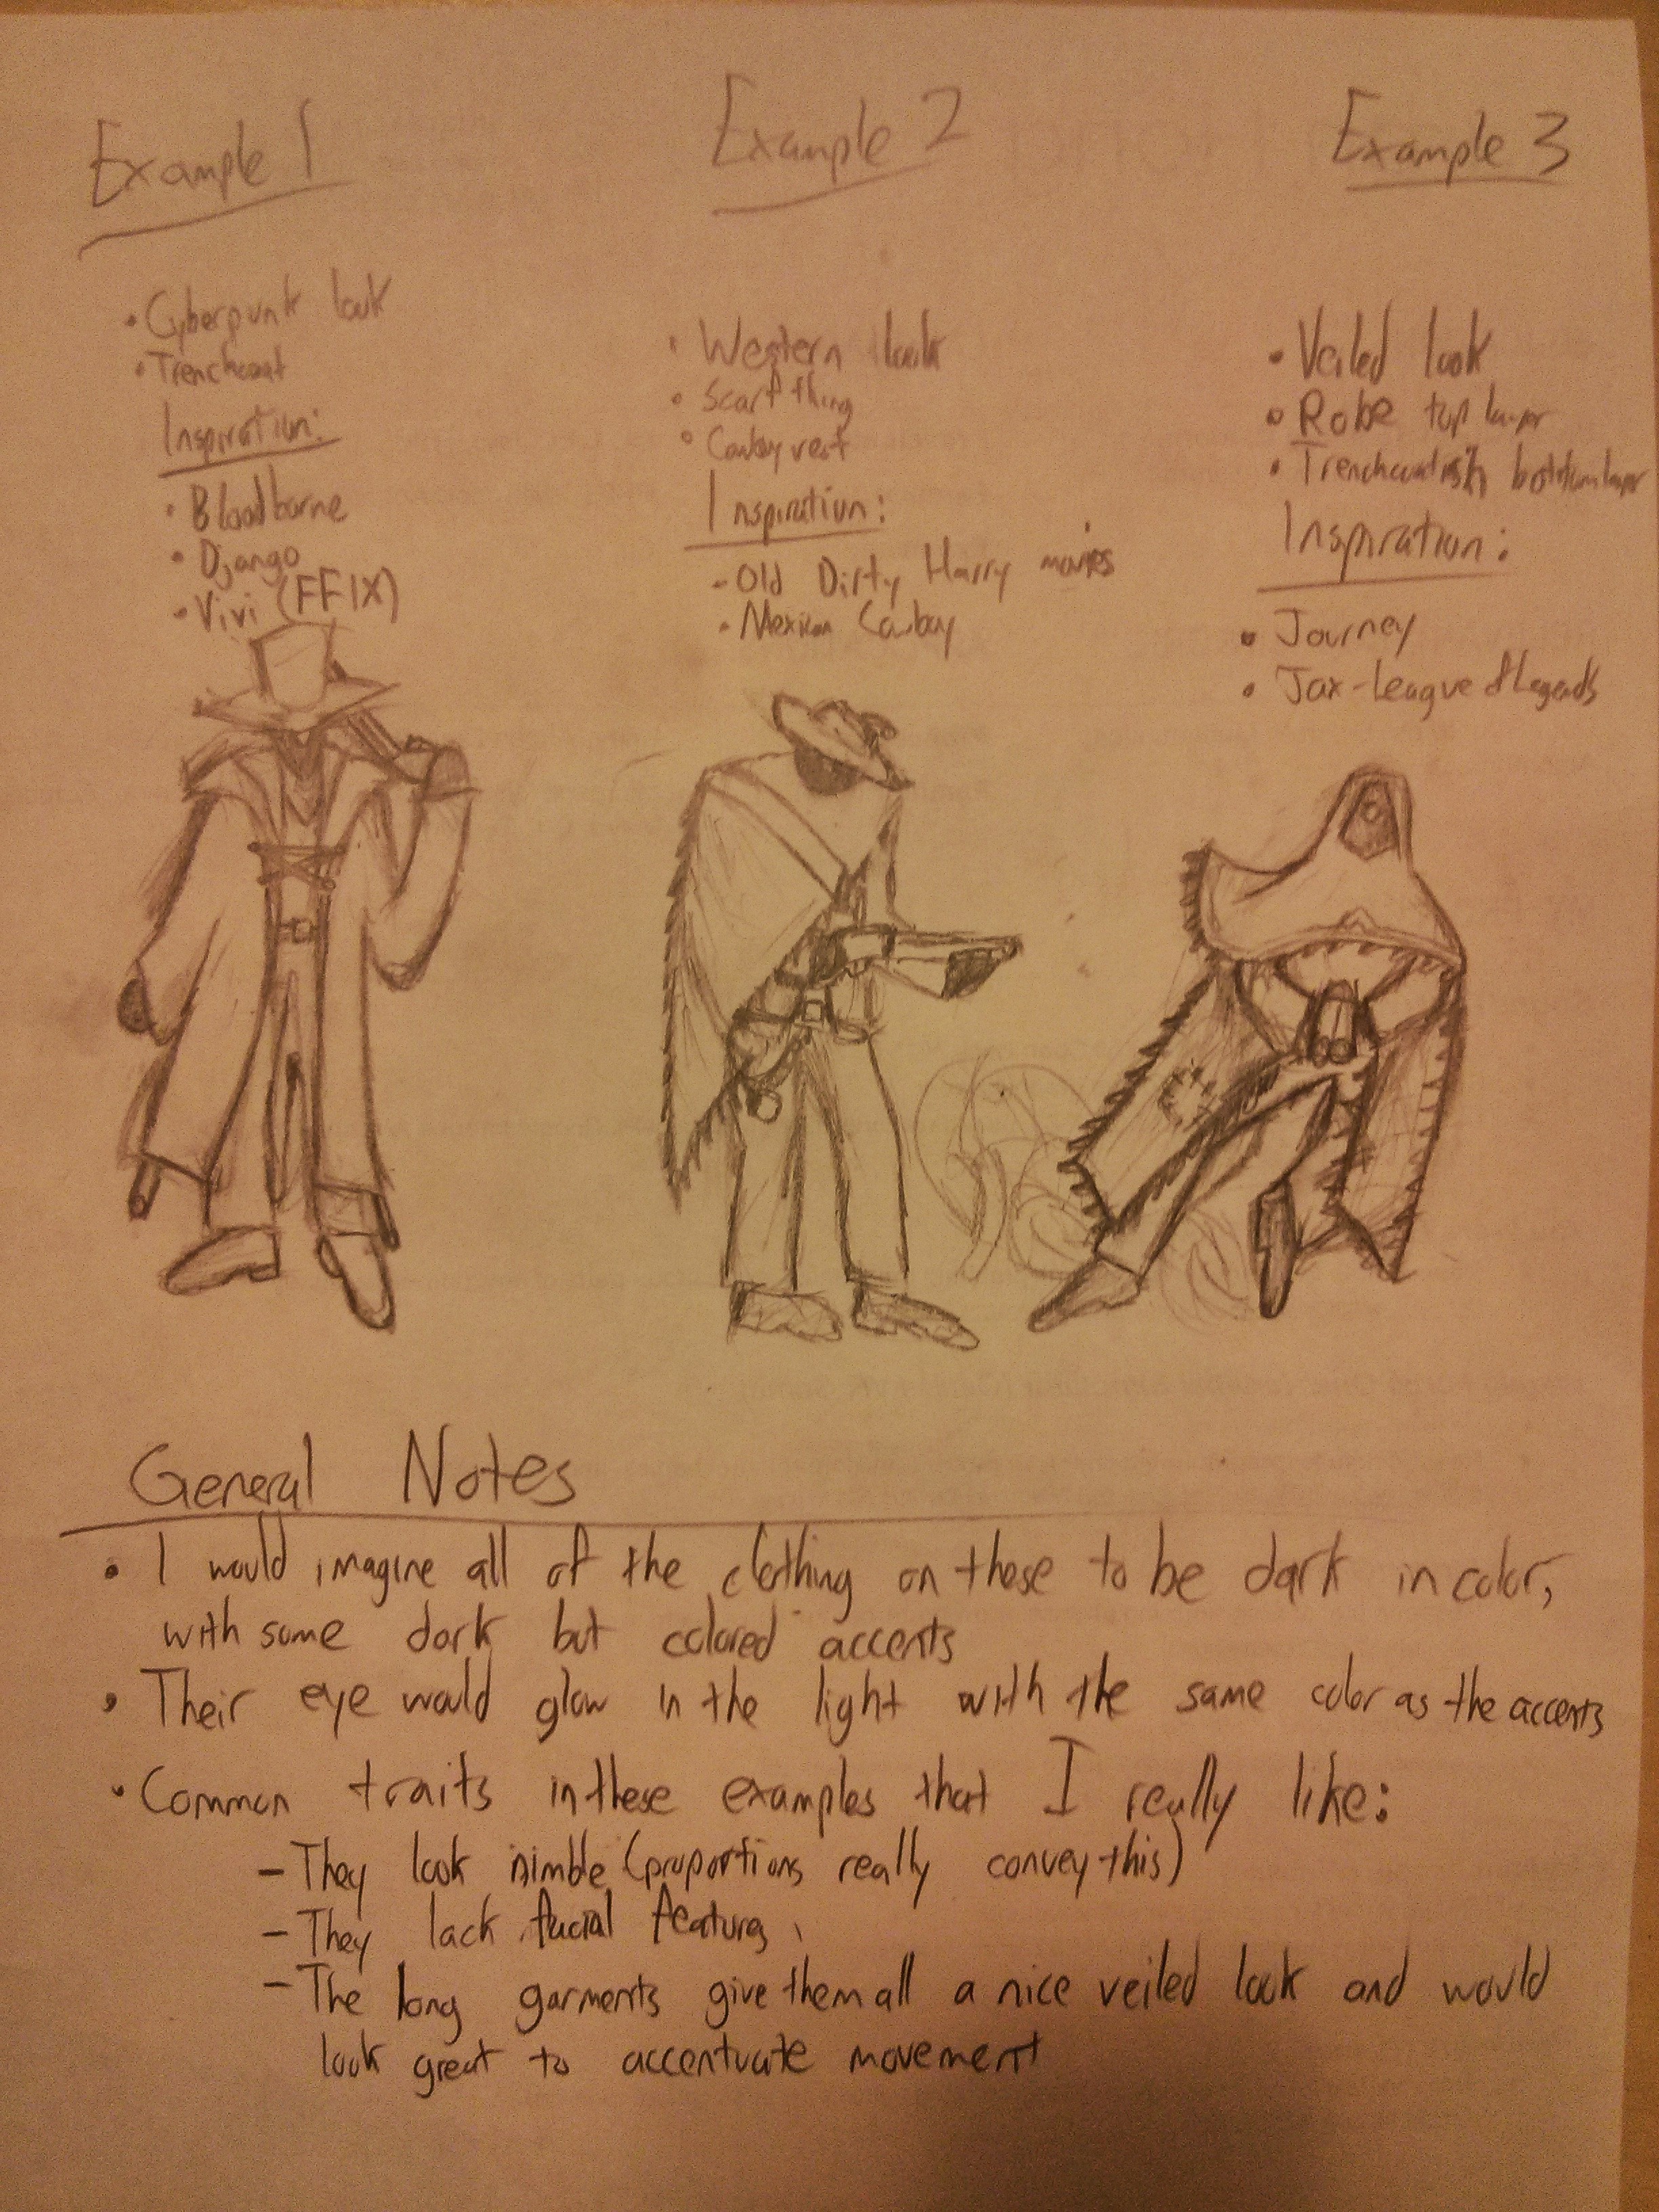 Example 1
• Cyberpunk look
• Trenchcoat
Inspiration:
• Bloodborne
• Django
• Vivi (FFIX)
Example 2
• Western look
• Scarf thing
• Cowboy vest
Inspiration:
- Old Dirty Harry movies
• Mexican Cowboy
Example 3
• Veiled look
• Robe top layer
• Trenchcoatish bottom layer
Inspiration:
• Journey
• Jax - League of Legends
General Notes
• I would imagine all of the clothing on these to be dark in color,
with some dark but colored accents
• Their eye would glow in the light with the same color as the accents
• Common traits in these examples that I really like:
- They look nimble (proportions really convey this)
- They lack facial features
- The long garments give them all a nice veiled look and would
look great to accentuate movement